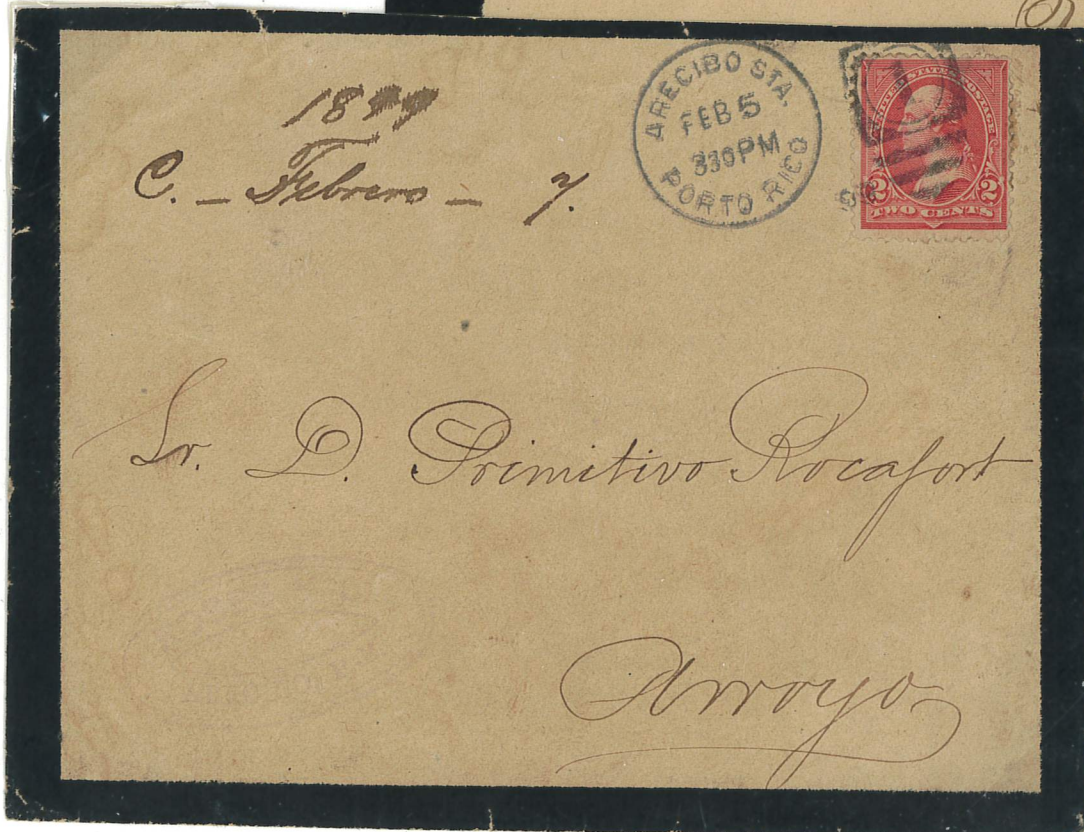 1899
C. - Febrero - 7.
ARECIBO STA.
FEB 5
330 PM
PORTO RICO
UNITED STATES POSTAGE
2 2
TWO CENTS
Sr. D. Primitivo Rocafort
Arroyo